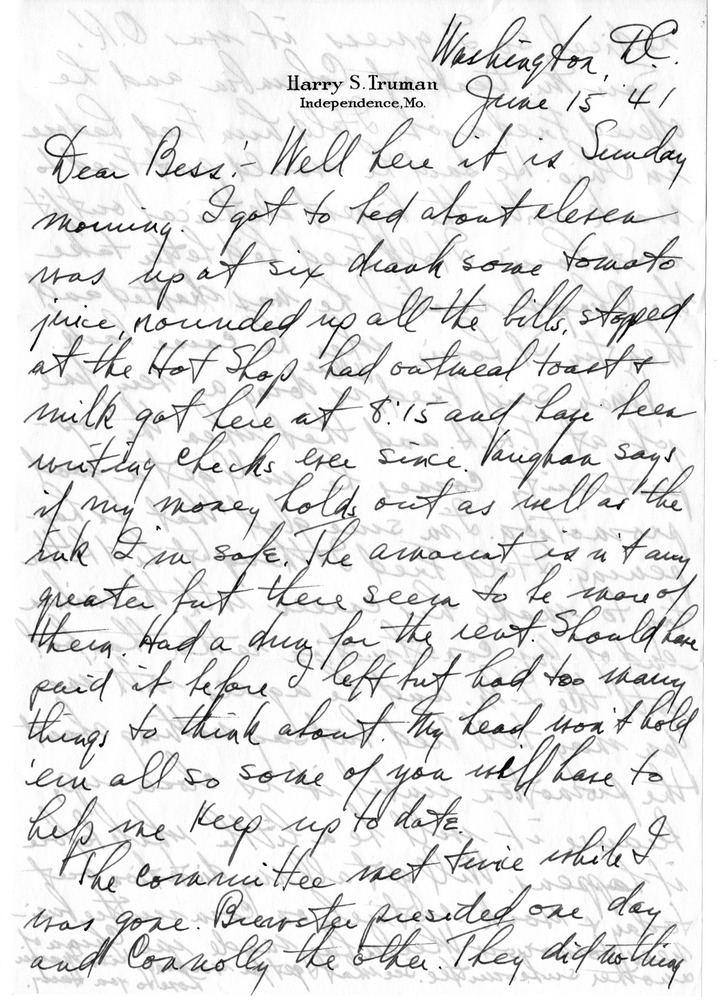 Washington, D.C.
Harry S. Truman
Independence, Mo.
June 15 '41
Dear Bess:- Well here it is Sunday
morning. I got to bed about eleven
was up at six drank some tomato
juice, rounded up all the bills, stopped
at the Hot Shop had oatmeal toast &
milk got here at 8:15 and have been
writing checks ever since. Vaughan says
if my money holds out as well as the
ink I'm safe. The amount isn't any
greater but there seem to be more of
them. Had a dun for the rent. Should have
paid it before I left but had too many
things to think about. My head won't hold
'em all so some of you will have to
help me keep up to date.
The committee met twice while I
was gone. Brewster presided one day
and Connolly the other. They did nothing